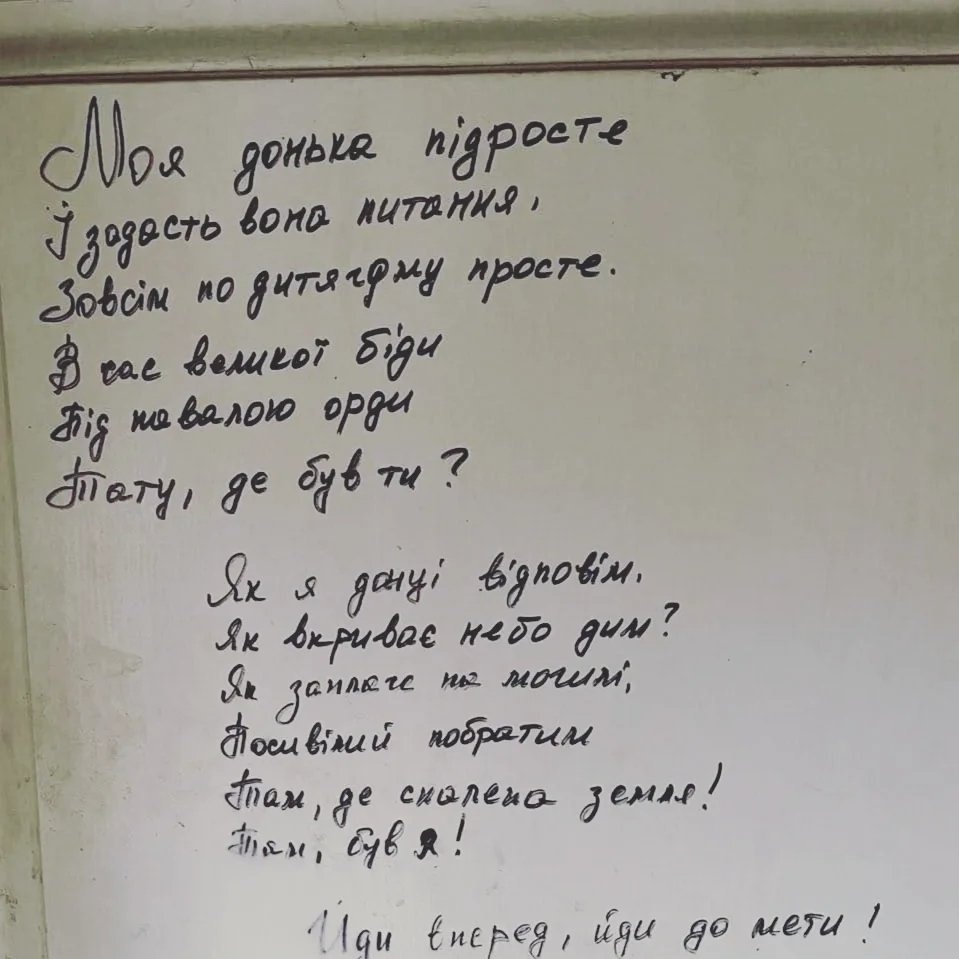 Моя донька підросте
І задасть вона питання,
Зовсім по дитячому просте.
В час великої біди
Під навалою орди
Тату, де був ти?
Як я доньці відповім.
Як вкриває небо дим?
Як заплаче на могилі,
Посивілий побратим
Там, де спалена земля!
Там, був я!
Йди вперед, йди до мети!